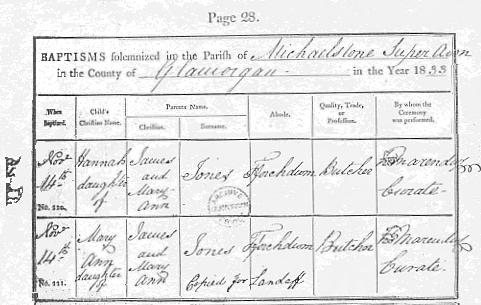 Page 28.
BAPTISMS solemnized in the Parish of Michaelstone Super Avon
in the County of Glamorgan in the Year 1833
When Baptized. Child's Christian Name. Parents Name. Christian. Surname. Abode. Quality, Trade, or Profession. By whom the Ceremony was performed.
Novr 14th No. 220. Hannah daughter of James and Mary Ann Jones Butcher Curate
Novr 14th No. 221. Mary Ann daughter of James and Mary Ann Jones Butcher Curate
Copied for Landaff